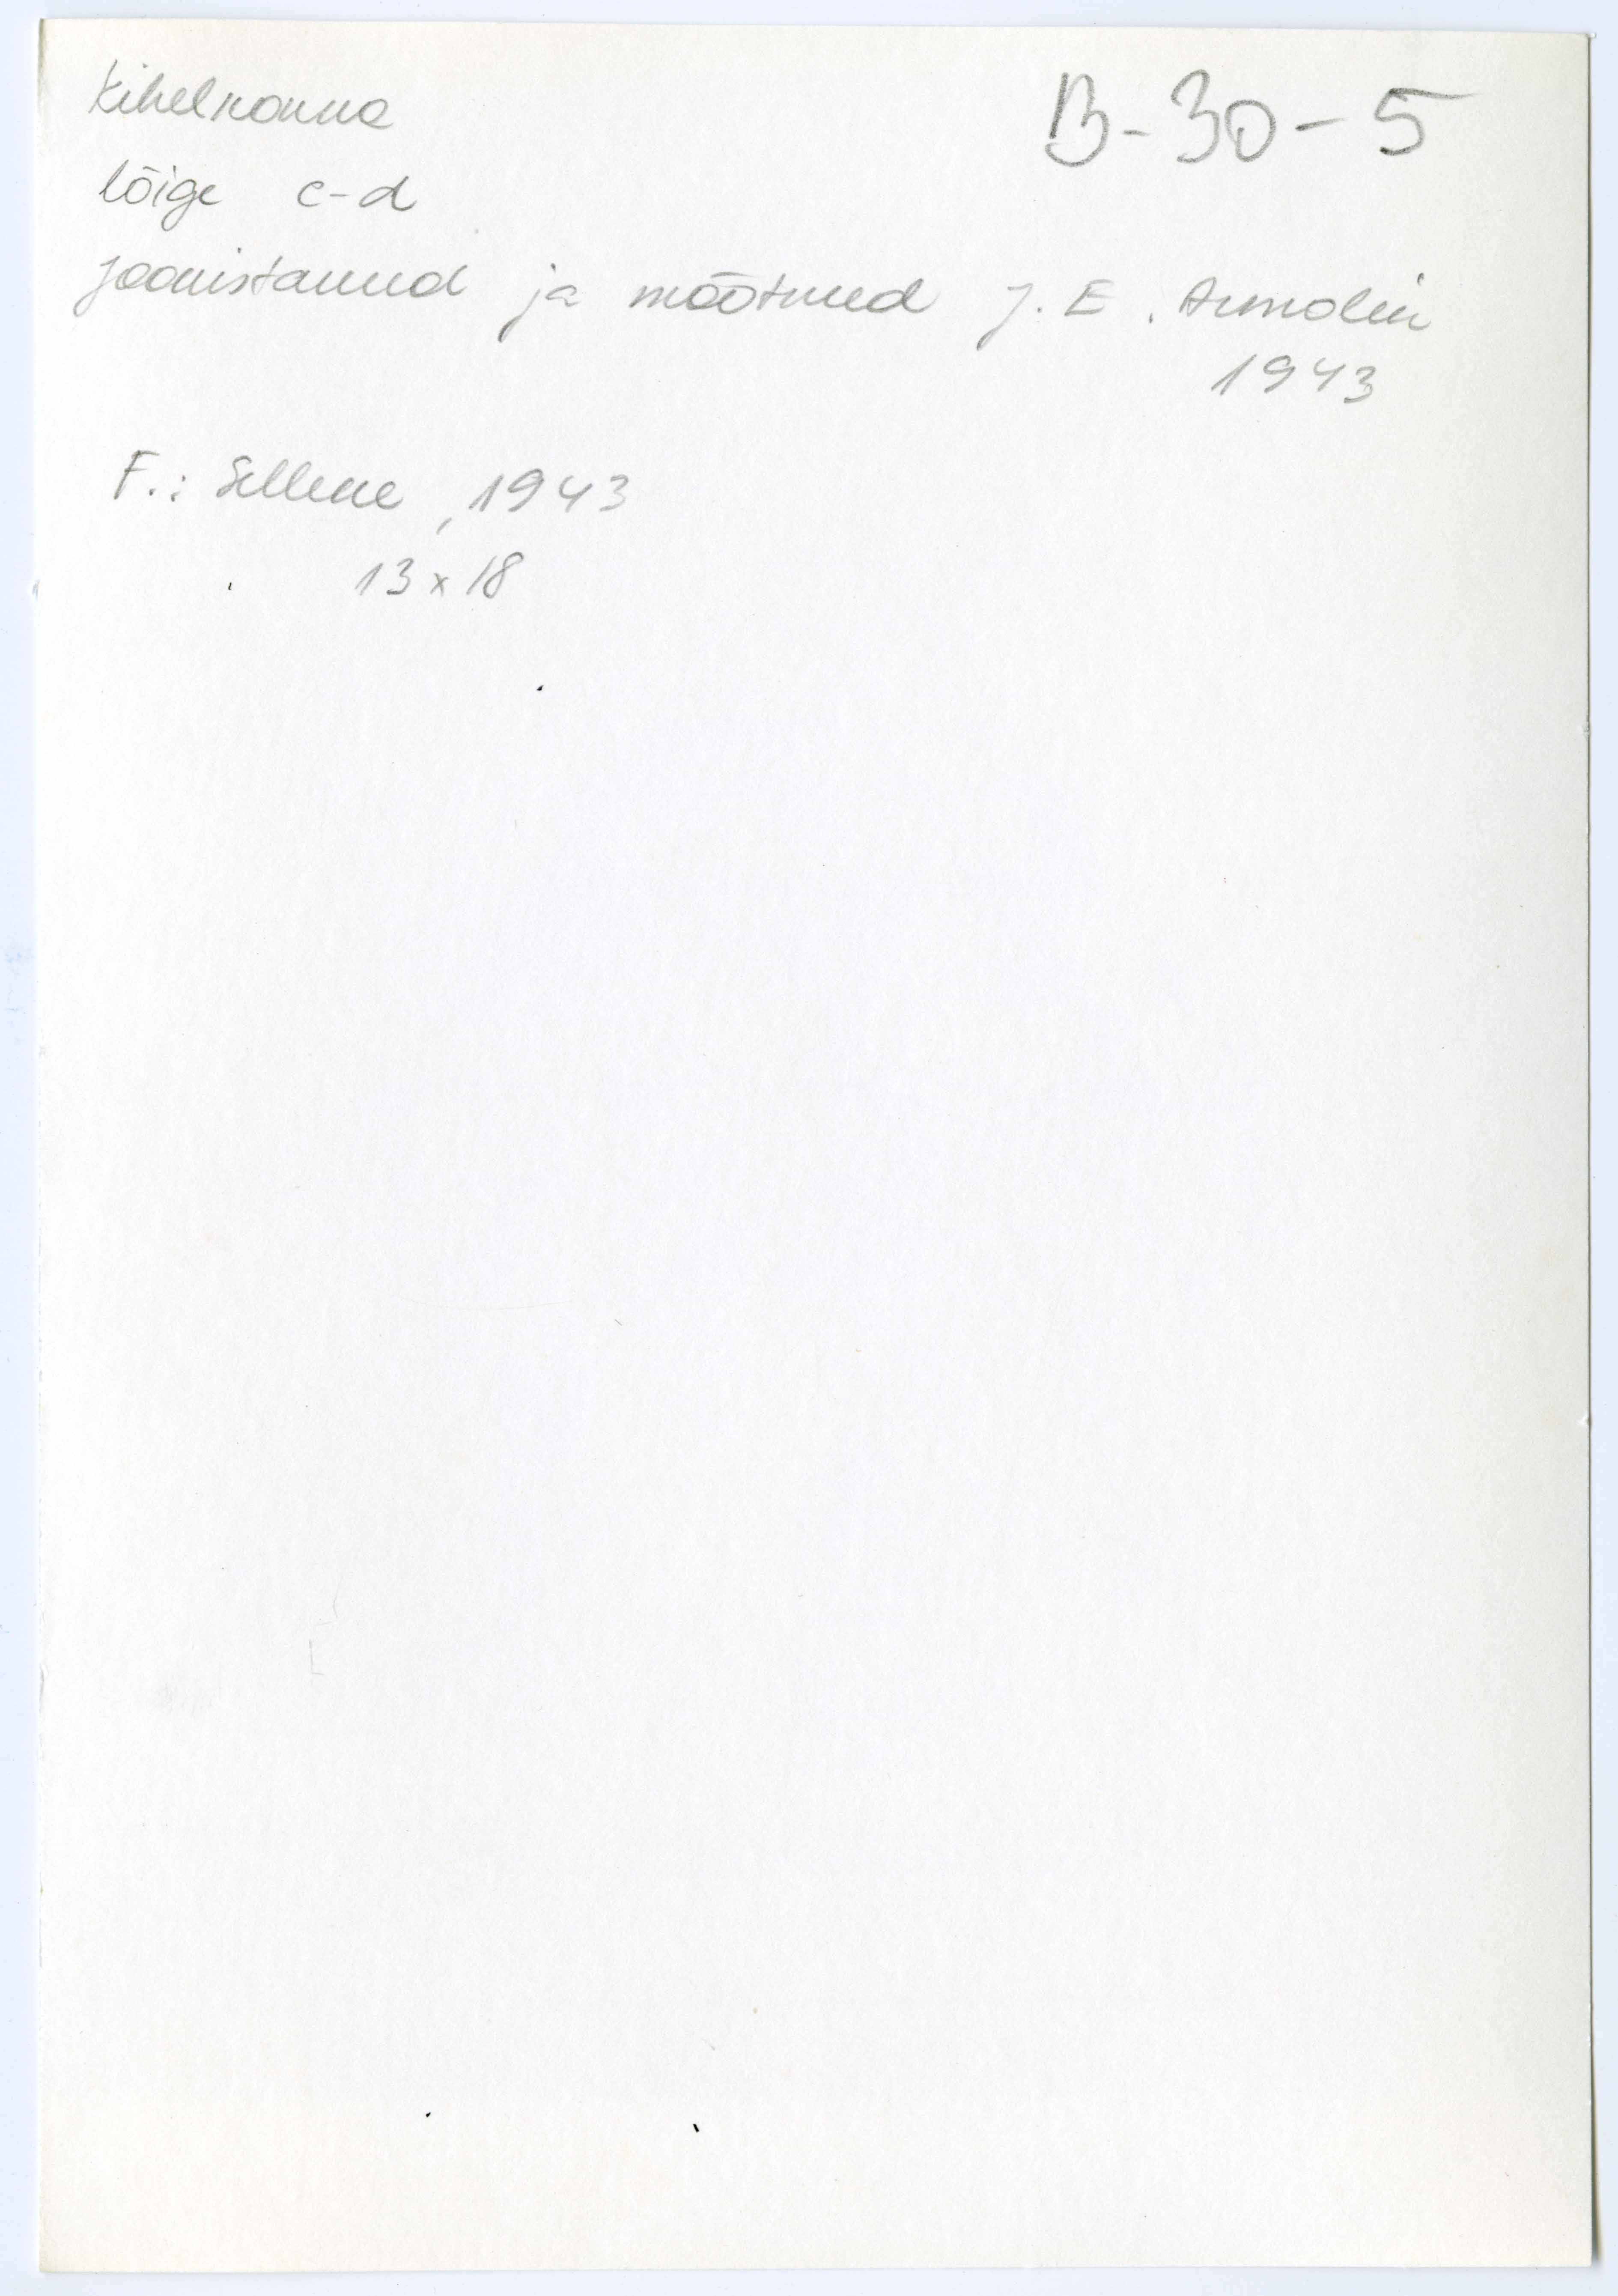 Kihelkonna
B-30-5
lõige c-d
joonistanud ja mõõtnud J. E.
1943
F.: Sellene, 1943
13 x 18